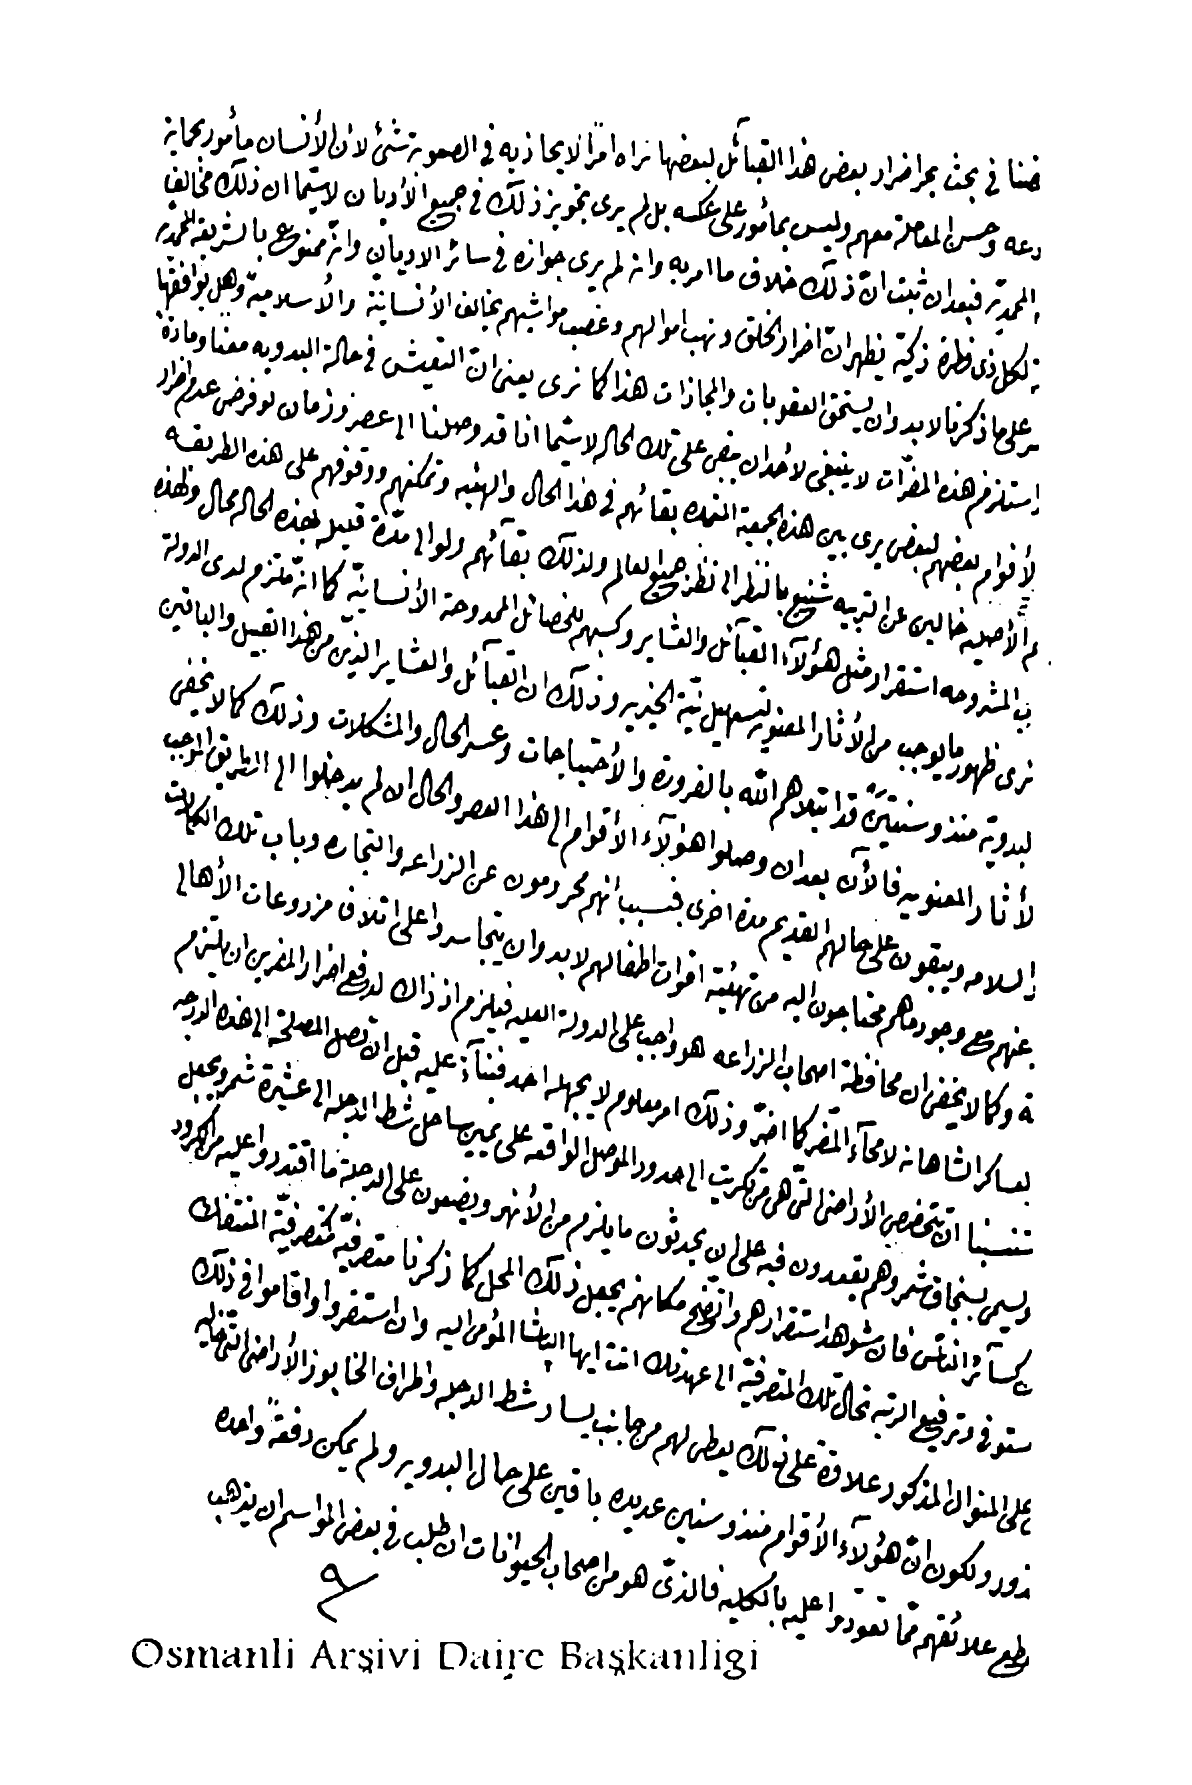 خضنا في بحث بحر اضرار بعض هذا القبائل لبعضها نراه امراً لا يحاذيه في الصعوبة شئ لان الأنسان مأمور بحماية
وحسن المعاملة معهم وليس بمأمور على عكسه بل لم يرى تجويز ذلك في جميع الأديان لاسيما ان ذلك مخالف
المحمديه فبعد ان ثبت ان ذلك خلاف ما امر به وانه لم يرى جوازه في سائر الاديان وانه ممنوع بالشريعة المحمديه
لكل ذى فطرة ذكية يظهر ان اضرار الخلق ونهب اموالهم وغصب مواشيهم يخالف الأنسانية والأسلامية وهل يوافقها
على ما ذكرنا لا بد وان يستحق العقوبات والمجازات هذا كما نرى يعنى ان التعيش في حالة البدويه معنا ومادة
استلزم هذه المضرات لا ينبغى لأحد ان يمضى على تلك الحاله لاسيما انا قد وصلنا الى عصر وزمان لو فرض عدم اضرار
الأقوام بعضهم لبعض يرى بين هذه الجمعية المتمدنه بقائهم في هذا الحال والهيئه وتمكنهم ووقوفهم على هذه الطريقه
الأصليه خالين عن التربيه شنيع بالنظر الى نظر جميع العالم ولذلك بقائهم ولو الى مدة قليله بهذه الحاله محال ولهذه
المشروحه استقرار مثل هؤلاء القبائل والعشاير وكسبهم للخصائل الممدوحة الأنسانية كما انه ملتزم لدى الدولة
نرى ظهور ما يوجب من الأثار المعنويه لتسهيل نية الخيريه وذلك ان القبائل والعشاير الذين من هذا القبيل والباقين
لبدوية منذ وسنتين قد ابتلاهم الله بالضرورة والأحتياجات وعسر الحال والمشكلات وذلك كما لا يخفى
لأثار المعنويه فالأن بعد ان وصلوا هؤلاء الأقوام الى هذا العصر والحال ان لم يدخلوا الى الطريق الموجب
السلامه ويبقون على حالهم القديم مدة اخرى فبسبب انهم محرومون عن الزراعه والتجاره وباب تلك الكمالات
عنهم مع وجود ما هم محتاجون اليه من تهيئة اقوات اطفالهم لا بد وان يتجاسروا على اتلاف مزروعات الأهالى
وكما لا يخفى ان محافظة اصحاب الزراعه هو واجب على الدولة العليه فيلزم اذ ذاك لدفع اضرار المضرين ان يلتزم
بعساكر الشاهانه لامحاء المضر كما اضر وذلك امر معلوم لا يجهله احد فبناءً عليه قبل ان تصل المصلحة الى هذه الدرجه
تنسبنا ان تتخصص الأراضى التى هى من تكريت الى حدود الموصل الواقعه على يمين ساحل شط الدجله الى عشيرة شمر ويجعل
ويسمى بسنجاق شمر وهم يقعدون فيه على ان يحدثون ما يلزم من الأنهر ويضعون على الدجلة ما اقتدروا عليه من الكرود
كسائر الناس فان شوهد استقرارهم واتضح مكانهم يجعل ذلك المحل كما ذكرنا متصرفيه كمتصرفية المنتفك
وترفيع الرتبه تحال تلك المتصرفية الى عهدتك انت ايها الباشا المؤمى اليه وان استقروا واقاموا في ذلك
على المنوال المذكور علاوة على ذلك يعطى لهم من جانب يسار شط الدجله واطراف الخابور الأراضى التى خاليه
ولكون ان هؤلاء الأقوام منذ وسنين عديده باقين على حال البدويه ولم يمكن دفعةً واحده
قطع علائقهم مما تعودوا عليه بالكليه فالذى هو من اصحاب الحيوانات ان طلب في بعض المواسم ان يذهب
Osmanli Arşivi Daire Başkanligi